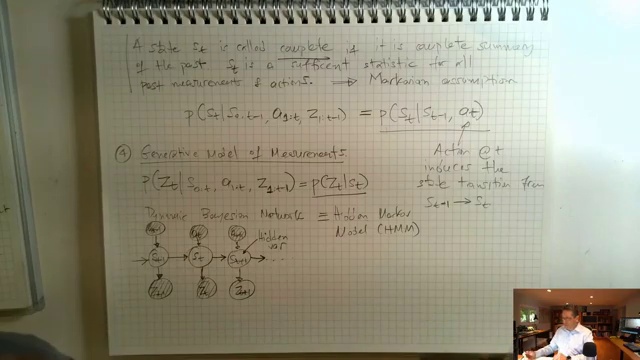 A state St is called complete if it is complete summary
of the past St is a sufficient statistic for all
past measurements & actions. ⟹ Markovian assumption
p(St | S0:t-1, a1:t, Z1:t-1) = p(St | St-1, at)
④ Generative Model of Measurements
Action @ t
induces the
state transition from
St-1 → St
p(Zt | S0:t, a1:t, Z1:t-1) = p(Zt | St)
Dynamic Bayesian Network ≡ Hidden Markov
Model (HMM)
at-1 at at+1
Hidden
var
St-1 → St → St+1 → ...
Zt-1 Zt Zt+1